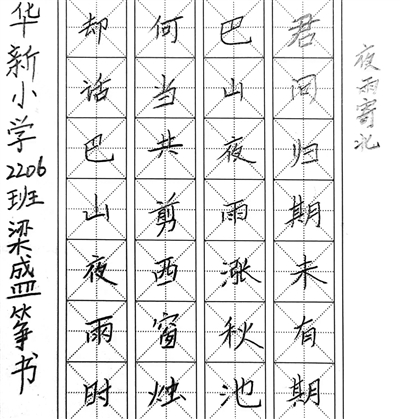 夜雨寄北
君问归期未有期
巴山夜雨涨秋池
何当共剪西窗烛
却话巴山夜雨时
华新小学2206班梁盛筝书